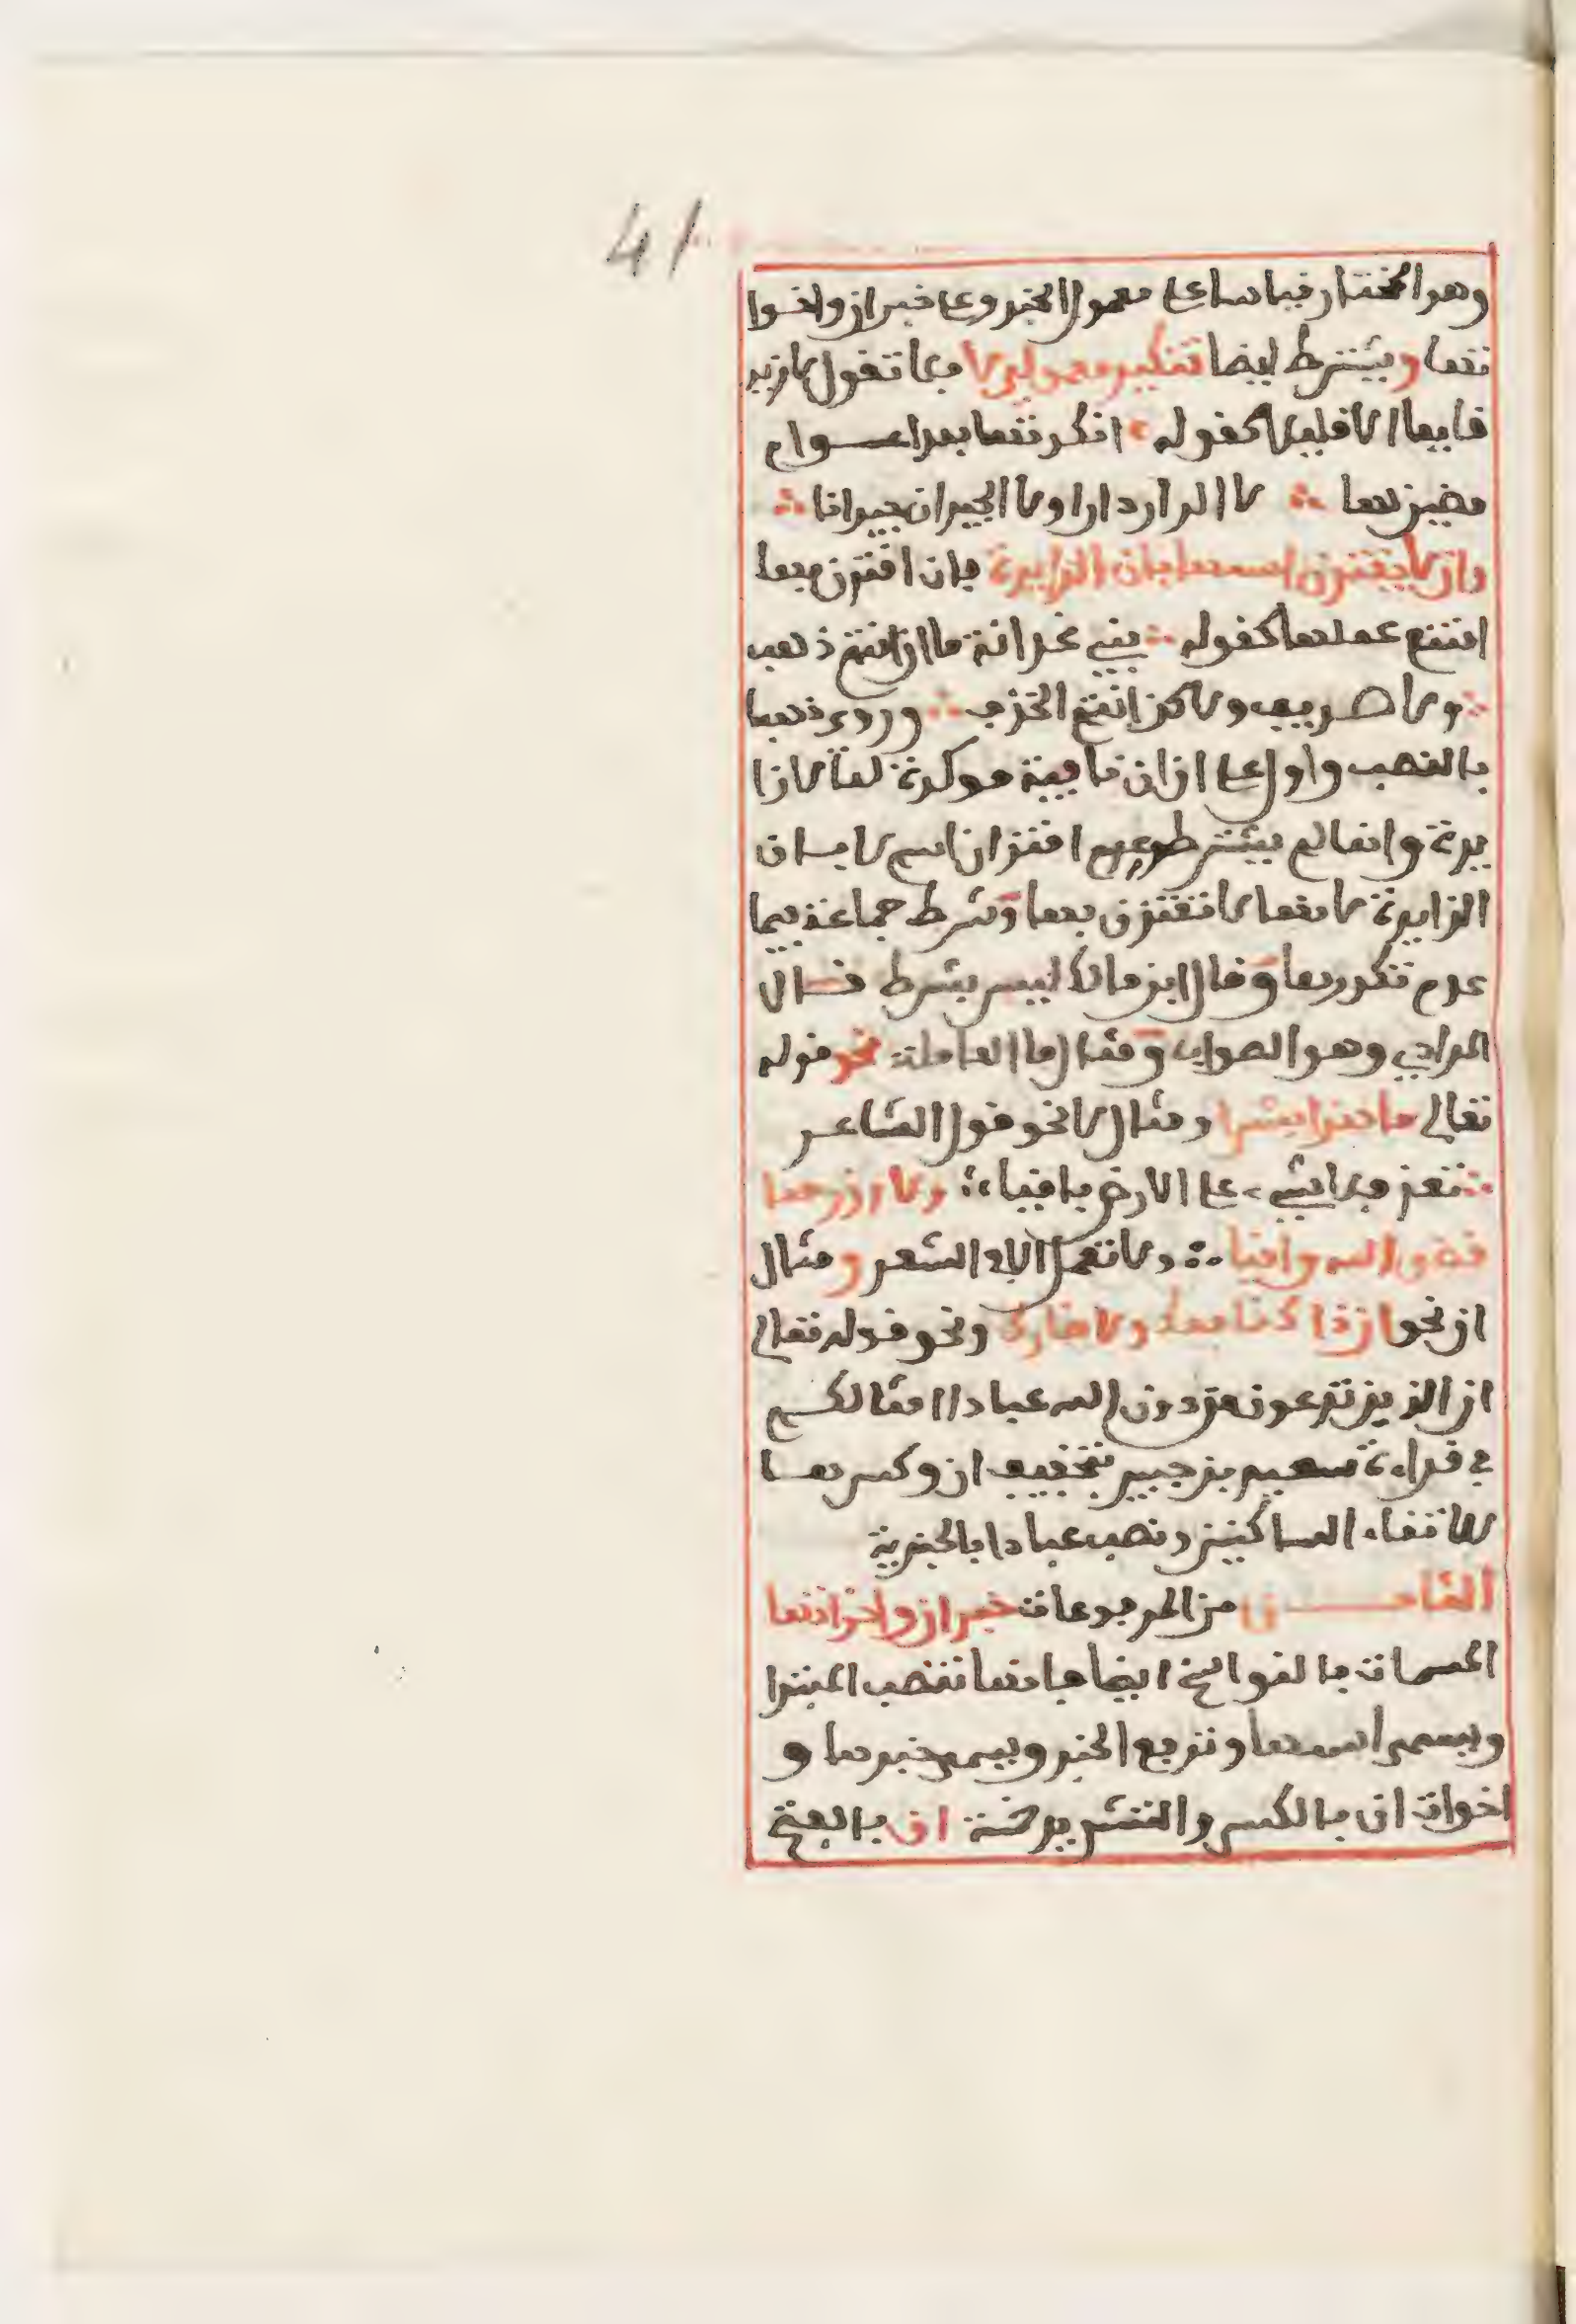 41
وهو المختار قياسا على معمول الخبر وعلى خبر ان واخوا
تها ويشترط ايضا تنكير معمولي لا فلا تقول لا زيد
قايما الا قليلا كقوله انكرتها بعد اعوام
مضين لها ∴ لا الدار دارا ولا الجيران جيرانا ∴
وان لا يقترن اسمها بان الزايدة فان اقترن بها
امتنع عملها كقوله ∴ بني غدانة ما ان انتم ذهب
∴ ولا صريف ولاكن انتم الخزف ∴ وروي ذهبا
بالنصب واول على ان ان نافية موكدة لما لا زا
يدة وانما لم يشترطوا عدم اقتران اسم لا بان
الزايدة لانها لا تقترن بها وشرط جماعة فيها
عدم تكررها وقال ابن مالك ليس بشرط قال
المرادي وهو الصواب ومثال ما العاملة نحو قوله
تعالى ما هذا بشرا ومثال لا نحو قول الشاعر
∴ تعز فلا شيء على الارض باقيا ∴ ولا وزر مما
قضى الله واقيا ∴ ولا تعمل الا في الشعر ومثال
ان نحو ان ذا نافعك ولا ضارك ونحو قوله تعالى
ان الذين تدعون من دون الله عبادا امثالكم
في قراءة سعيد بن جبير بتخفيف ان وكسرها
لالتقاء الساكنين ونصب عبادا بالخبرية
الثامن من المرفوعات خبر ان واخواتها
المسمات بالنواسخ ايضا فانها تنصب المبتدا
ويسمى اسمها وترفع الخبر ويسمى خبرها و
اخوات ان بالكسر والتشديد خمسة ان بالفتح